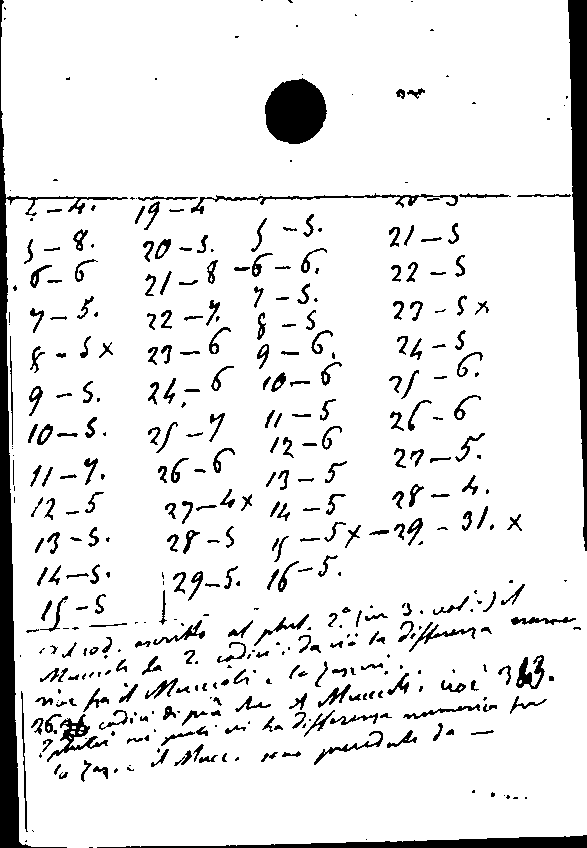 4 – 4.
5 – 8.
6 – 6
7 – 5.
8 – 5 x
9 – 5.
10 – 5.
11 – 7.
12 – 5
13 – 5.
14 – 5.
15 – 5
19 – 4
20 – 5.
21 – 8
22 – 7.
23 – 6
24 – 6
25 – 7
26 – 6
27 – 4 x
28 – 5
29 – 5.
5 – 5.
– 6 – 6.
7 – 5.
8 – 5
9 – 6.
10 – 6
11 – 5
12 – 6
13 – 5
14 – 5
15 – 5 x
16 – 5.
20 – 5
21 – 5
22 – 5
23 – 5 x
24 – 5
25 – 6.
26 – 6
27 – 5.
28 – 4.
– 29. – 31. x
cod. ascritto al plut. 2.° (in 3. vol.) il
Muccioli da 2. codici: da ciò la differenza nume-
rica fra il Muccioli e lo Zazzeri.
26. codici di più che il Muccioli. cioè 343.
plutei nei quali vi ha differenza numerica fra
lo Zaz. e il Mucc. sono preceduti da —